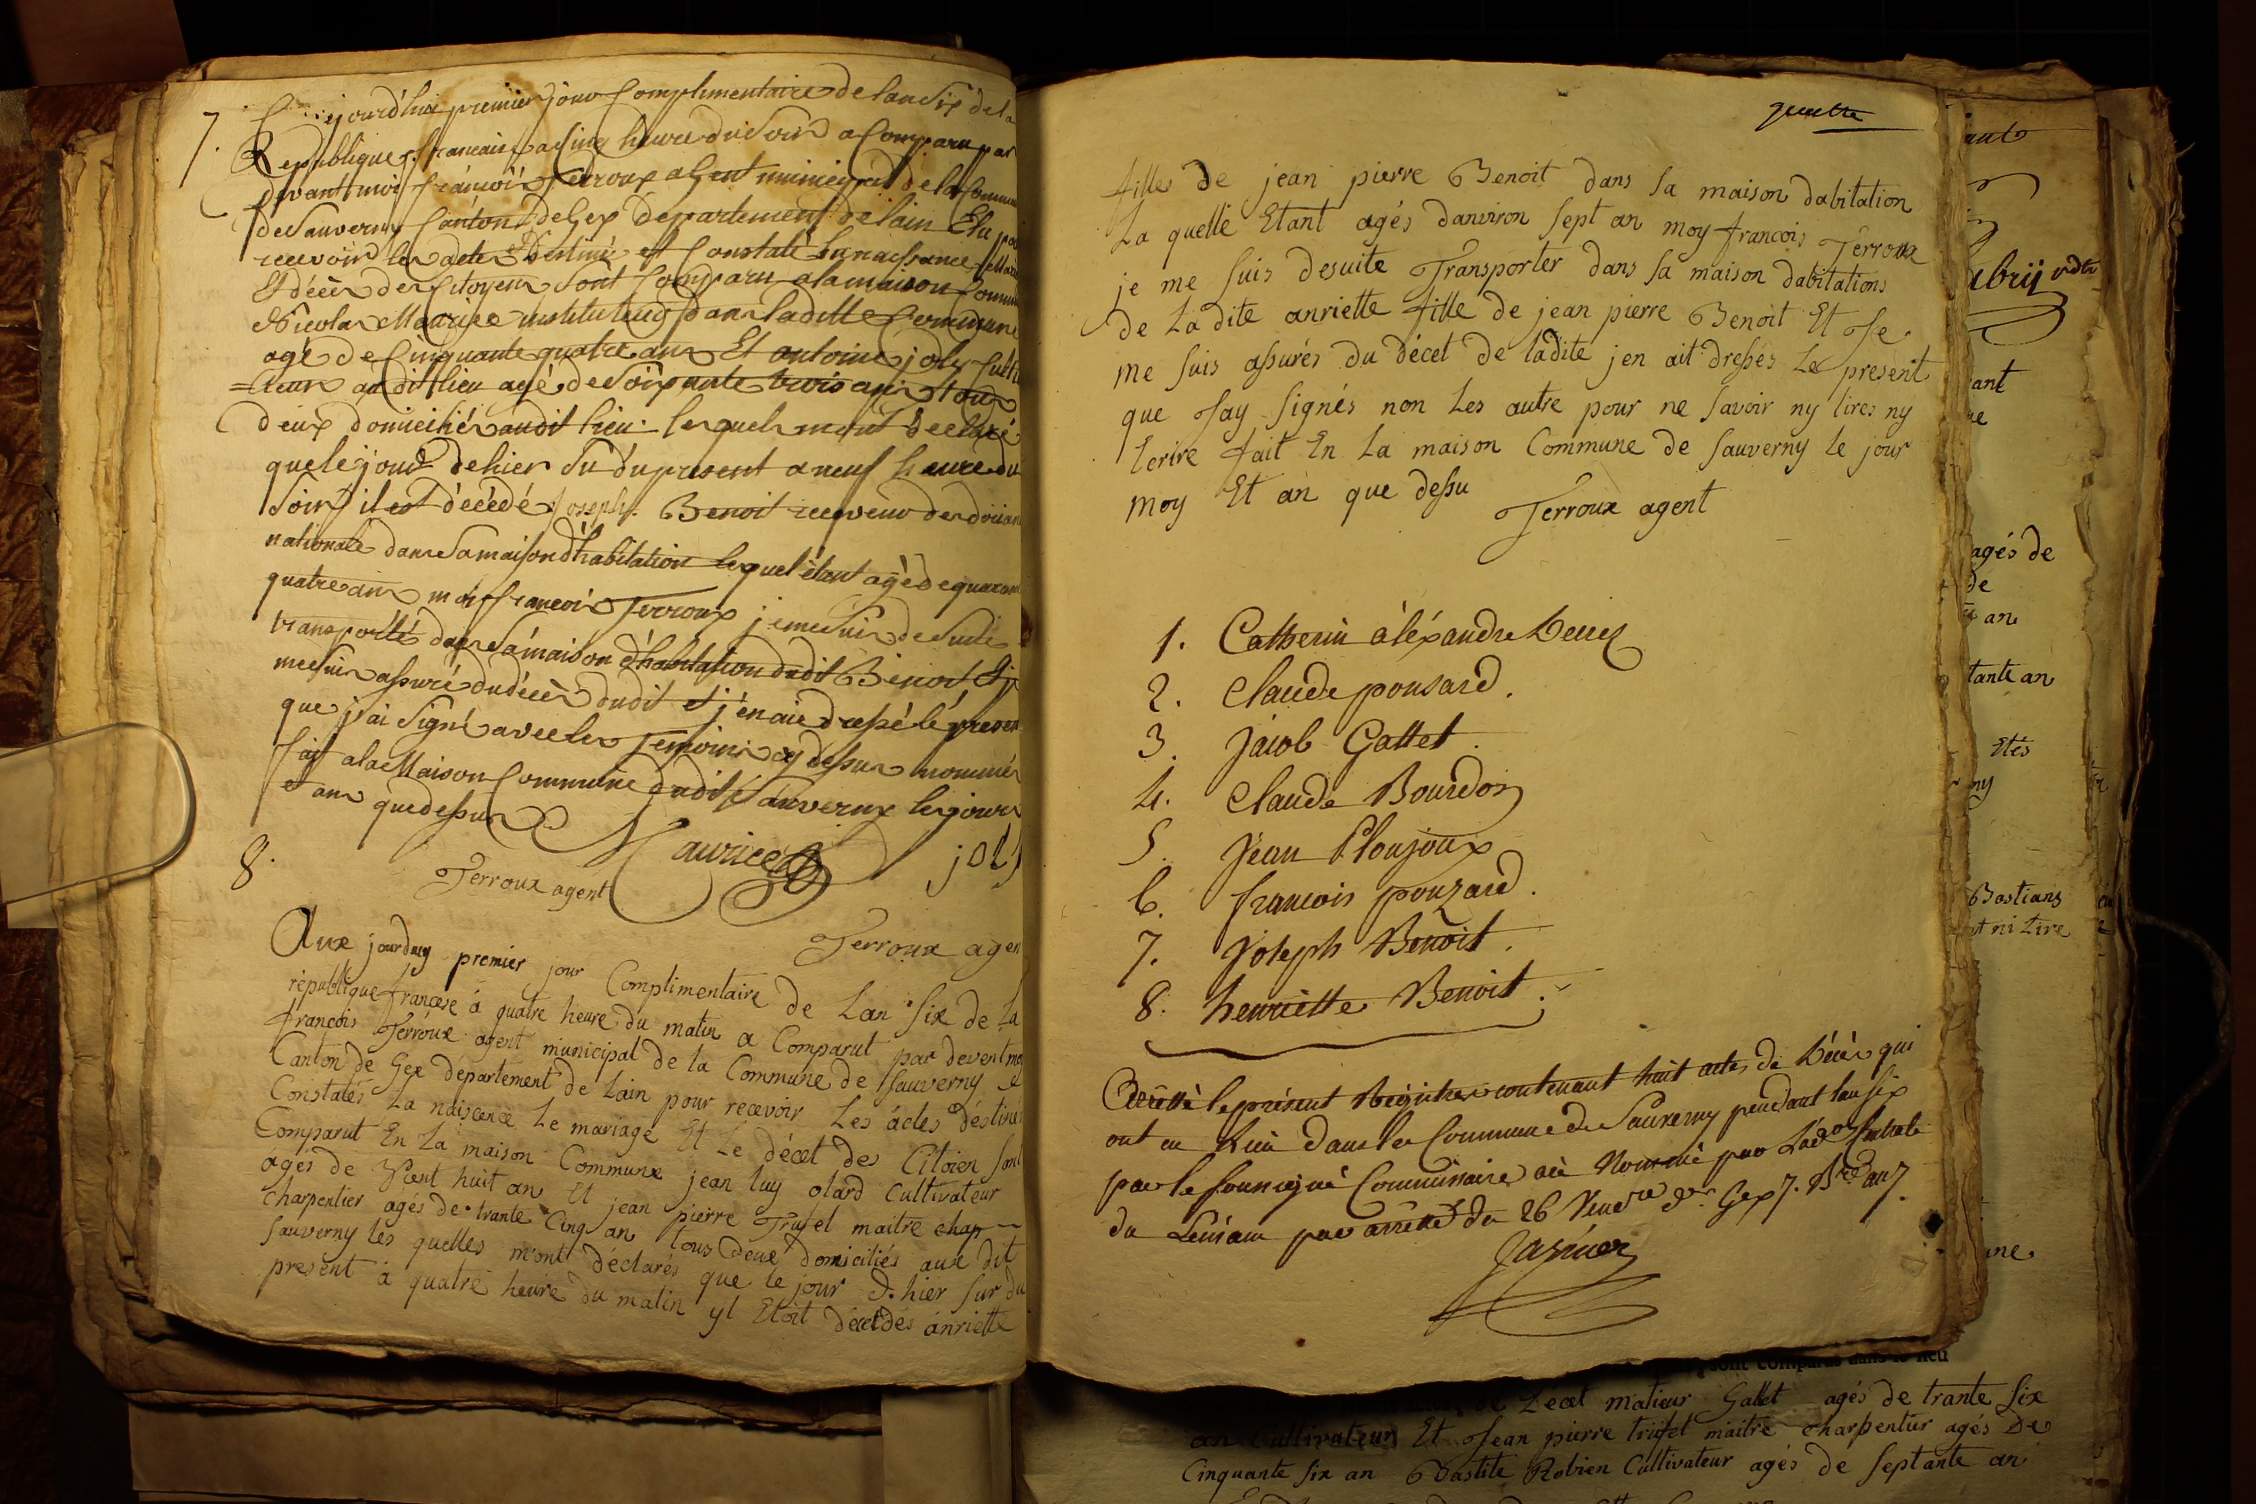 7.
jourd'hui premier jour Complimentaire de lan Six de la
Republique francaise a Cinq heure du Soir a Comparu par
devant moi francois Terroux agent municipal de la Commune
de Sauverny Canton de Gex departement de lain Elu pour
recevoir les actes destiné et Constaté la naissance
Et décès des Citoyens Sont Comparu a la maison Commune
Nicolas Maurice instituteur dans la ditte Commune
agé de Cinquante quatre ans Et antoine joly Culti
=teur au dit lieu agé de Soixante trois ans tous
deux domicilié audit lieu lesquels mont declaré
que le jour dehier Sur du present a neuf heure du
Soir il est décédé joseph Benoit receveur des douane
nationale dans Sa maison d'habitation lequel étant agé de quarante
quatre ans moi francois Terroux je me Suis de Suite
transporté dans Sa maison d'habitation dudit Benoit Et je
me Suis assuré du décès dudit et j'en aie dressé le present
que j'ai Signé avec les Temoins cy dessus nommés
fait a la Maison Commune dudit Sauverny les jours
et ans que dessus
Maurice joly
Terroux agent
8.
Terroux agen
Aux jourduy premier jour Complimentaire de Lan Six de La
republique francese á quatre heure du matin a Comparut par devent moy
francois Terroux agent municipal de la Commune de Sauverny
Canton de Gex département de Lain pour recevoir Les áctes déstinés
Constatés La naiscence Le mariage Et Le décet des Citoien sont
Comparut En La maison Commune jean luy olard Cultivateur
agés de huit an Et jean pierre Trufet maitre char
charpentier agés de trante Cinq an tous deux domiciliés aux dit
Sauverny les quelles m'ont déclarés que le jour d.hier Sur du
present á quatre heure du matin yl Etoit décédés ánriette
genette
fille de jean pierre Benoit dans Sa maison dabitation
La quelle Etant agés danviron Sept an moy francois Terroux
je me Suis desuite Transporter dans Sa maison dabitations
de La dite anriette fille de jean pierre Benoit Et Je
me Suis assurés du décet de ladite jen ait dressés Le present
que Jay Signés non Les autre pour ne Savoir ny lires ny
Ecrire fait En La maison Commune de Sauverny Le jour
moy Et an que dessu
Terroux agent
1. Catherin aléxandre
2. Claude pousard.
3. Jacob Gallet
4. Claude Bourdon
5. Jean Ploujoux
6. francois pouzard.
7. Joseph Benoit.
8. henriette Benoit.
Arrétté le présent Régistre contenant huit actes de Décès qui
ont eu lieu dans la Commune de Sauverny pendant lan six
par le soussigné Commissaire nommé par Ladon Centrale
du Leman par arrété du 26 Vendre der. Gex 7. Bre an 7.
agés de
de
an
tante an
Etés
ny
Bastians
ni Lire
sont comparus dans le lieu
matieur Gallet agés de trante Six
an Cultivateur Et Jean pierre trufet maitre charpentier agés De
Cinquante Six an Bastite Robien Cultivateur agés de Septante an